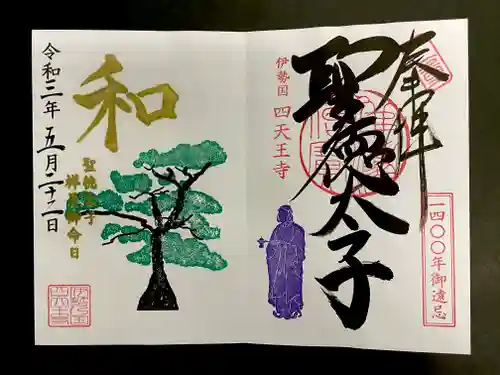 奉拝
聖徳太子
伊勢国 四天王寺
一四〇〇年御遠忌
和
聖徳太子
祥月御命日
令和三年五月二十二日